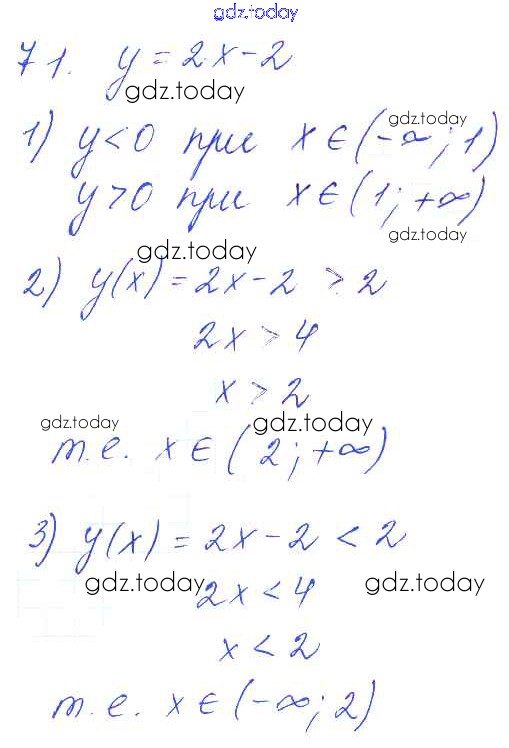 gdz.today
71. y = 2x - 2
gdz.today
gdz.today
1) y < 0 при x ∈ (-∞; 1)
y > 0 при x ∈ (1; +∞)
gdz.today
gdz.today
2) y(x) = 2x - 2 > 2
2x > 4
x > 2
gdz.today
gdz.today
т.е. x ∈ (2; +∞)
3) y(x) = 2x - 2 < 2
gdz.today
gdz.today
2x < 4
x < 2
т.е. x ∈ (-∞; 2)